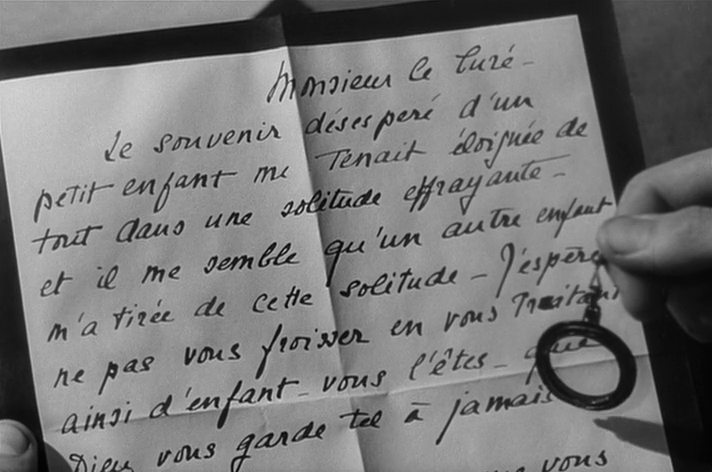 Monsieur le Curé -
Le souvenir désespéré d'un
petit enfant me tenait éloignée de
tout dans une solitude effrayante -
et il me semble qu'un autre enfant
m'a tirée de cette solitude - J'espère
ne pas vous froisser en vous traitant
ainsi d'enfant - vous l'êtes - que
Dieu vous garde tel à jamais
vous